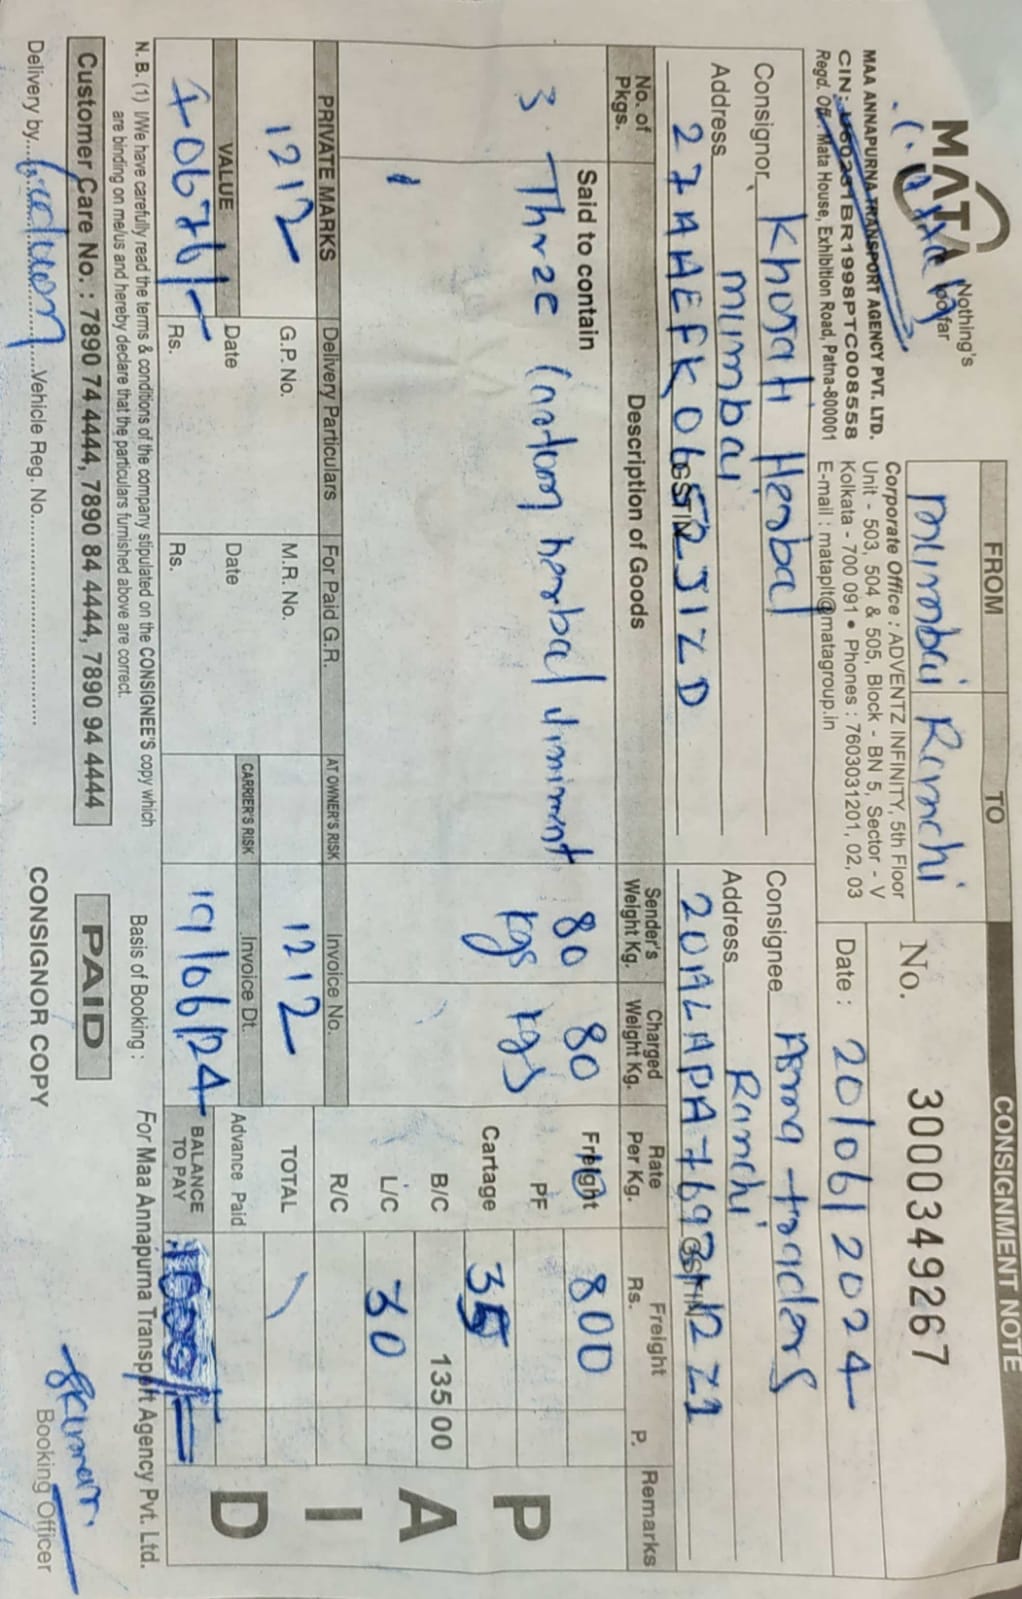 MATA
Nothing's
too far
MAA ANNAPURNA TRANSPORT AGENCY PVT. LTD.
CIN: U60231BR1998PTC008558
Regd. Off.: Mata House, Exhibition Road, Patna-800001
FROM
TO
Mumbai
Ranchi
Corporate Office : ADVENTZ INFINITY, 5th Floor
Unit - 503, 504 & 505, Block - BN 5, Sector - V
Kolkata - 700 091 • Phones : 7603031201, 02, 03
E-mail : mataplt@matagroup.in
CONSIGNMENT NOTE
No. 3000349267
Date : 20/06/2024
Consignor Khorati Herbal
Address Mumbai
27AAEFK0652J1ZD
GSTIN
Consignee Asma traders
Address Ranchi
GSTIN
No. of Pkgs.
Description of Goods
Sender's Weight Kg.
Charged Weight Kg.
Rate Per Kg.
Freight Rs. P.
Remarks
Said to contain
3 Three Cartoon herbal liniment
80 kgs
80 kgs
Freight 800
PF
Cartage
B/C 135 00
L/C 30
R/C
TOTAL
Advance Paid
BALANCE TO PAY
PAID
PRIVATE MARKS
Delivery Particulars
For Paid G.R.
AT OWNER'S RISK
Invoice No.
1212
G.P. No.
M.R. No.
1212
VALUE
Date
Date
CARRIER'S RISK
Invoice Dt.
70676/-
Rs.
Rs.
19/06/24
N. B. (1) I/We have carefully read the terms & conditions of the company stipulated on the CONSIGNEE'S copy which
are binding on me/us and hereby declare that the particulars furnished above are correct.
Basis of Booking :
For Maa Annapurna Transport Agency Pvt. Ltd.
Customer Care No. : 7890 74 4444, 7890 84 4444, 7890 94 4444
PAID
Delivery by Godown Vehicle Reg. No.
CONSIGNOR COPY
Booking Officer